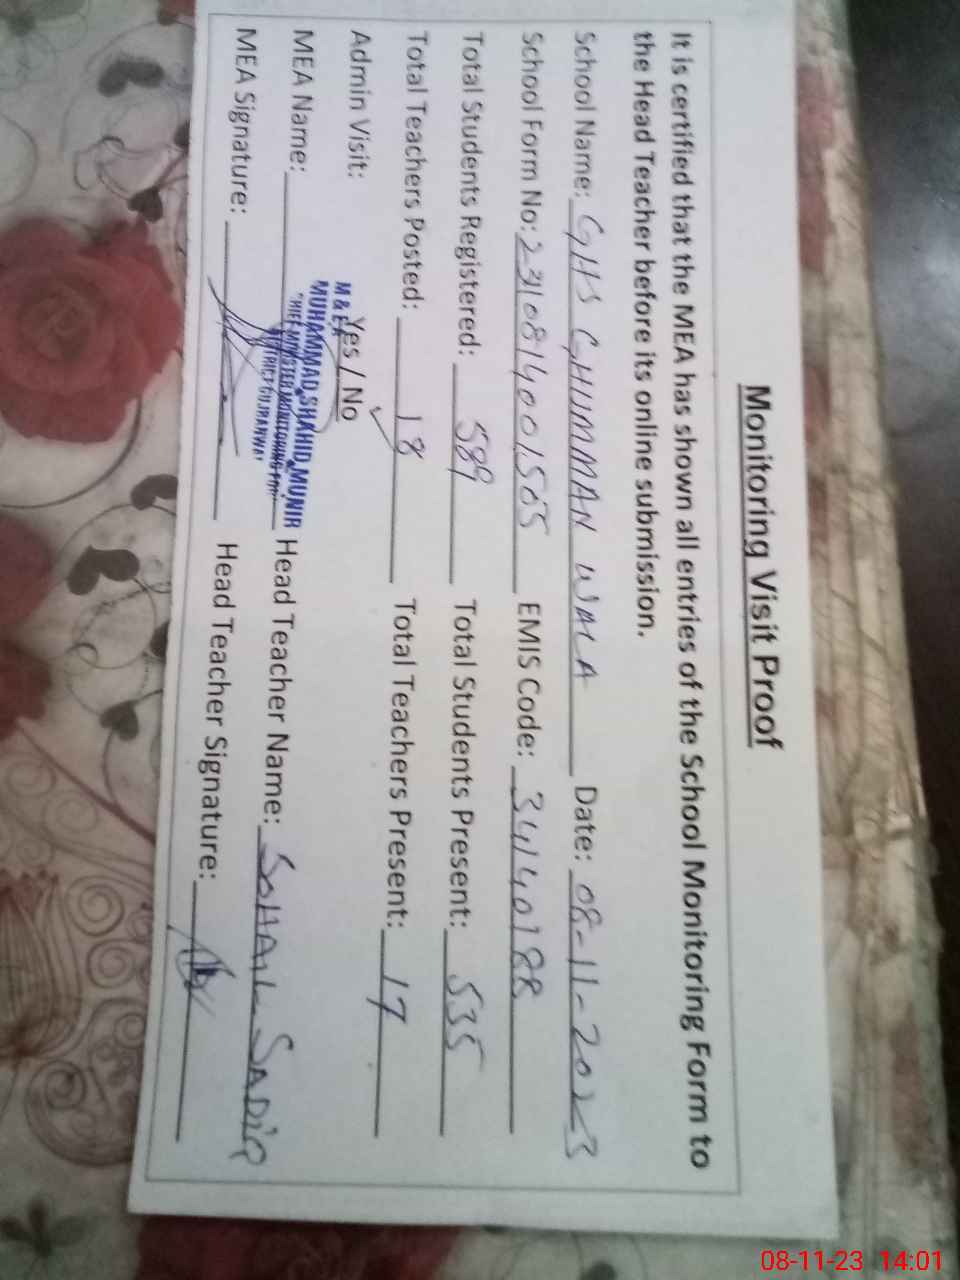 Monitoring Visit Proof
It is certified that the MEA has shown all entries of the School Monitoring Form to
the Head Teacher before its online submission.
School Name: GHS CHUMMAN WALA Date: 08-11-2023
School Form No: 2310814001505 EMIS Code: 34140188
Total Students Registered: 589 Total Students Present: 535
Total Teachers Posted: 18 Total Teachers Present: 17
Admin Visit: Yes / No ✓
M & EA
MUHAMMAD SHAHID MUNIR
CHIEF MINISTER MONITORING FOR
DISTRICT GUJRANWAL
MEA Name: Head Teacher Name: SOHAIL SADIQ
MEA Signature: Head Teacher Signature:
08-11-23 14:01